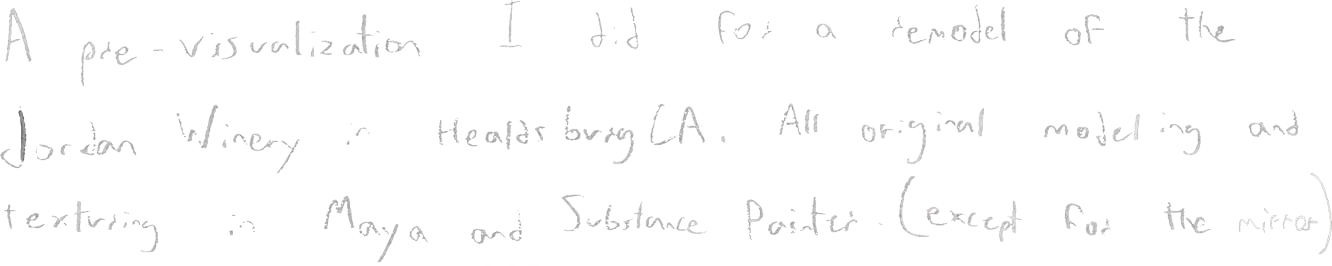 A pre-visualization I did for a remodel of the
Jordan Winery in Healdsburg CA. All original modeling and
texturing in Maya and Substance Painter. (except for the mirror)